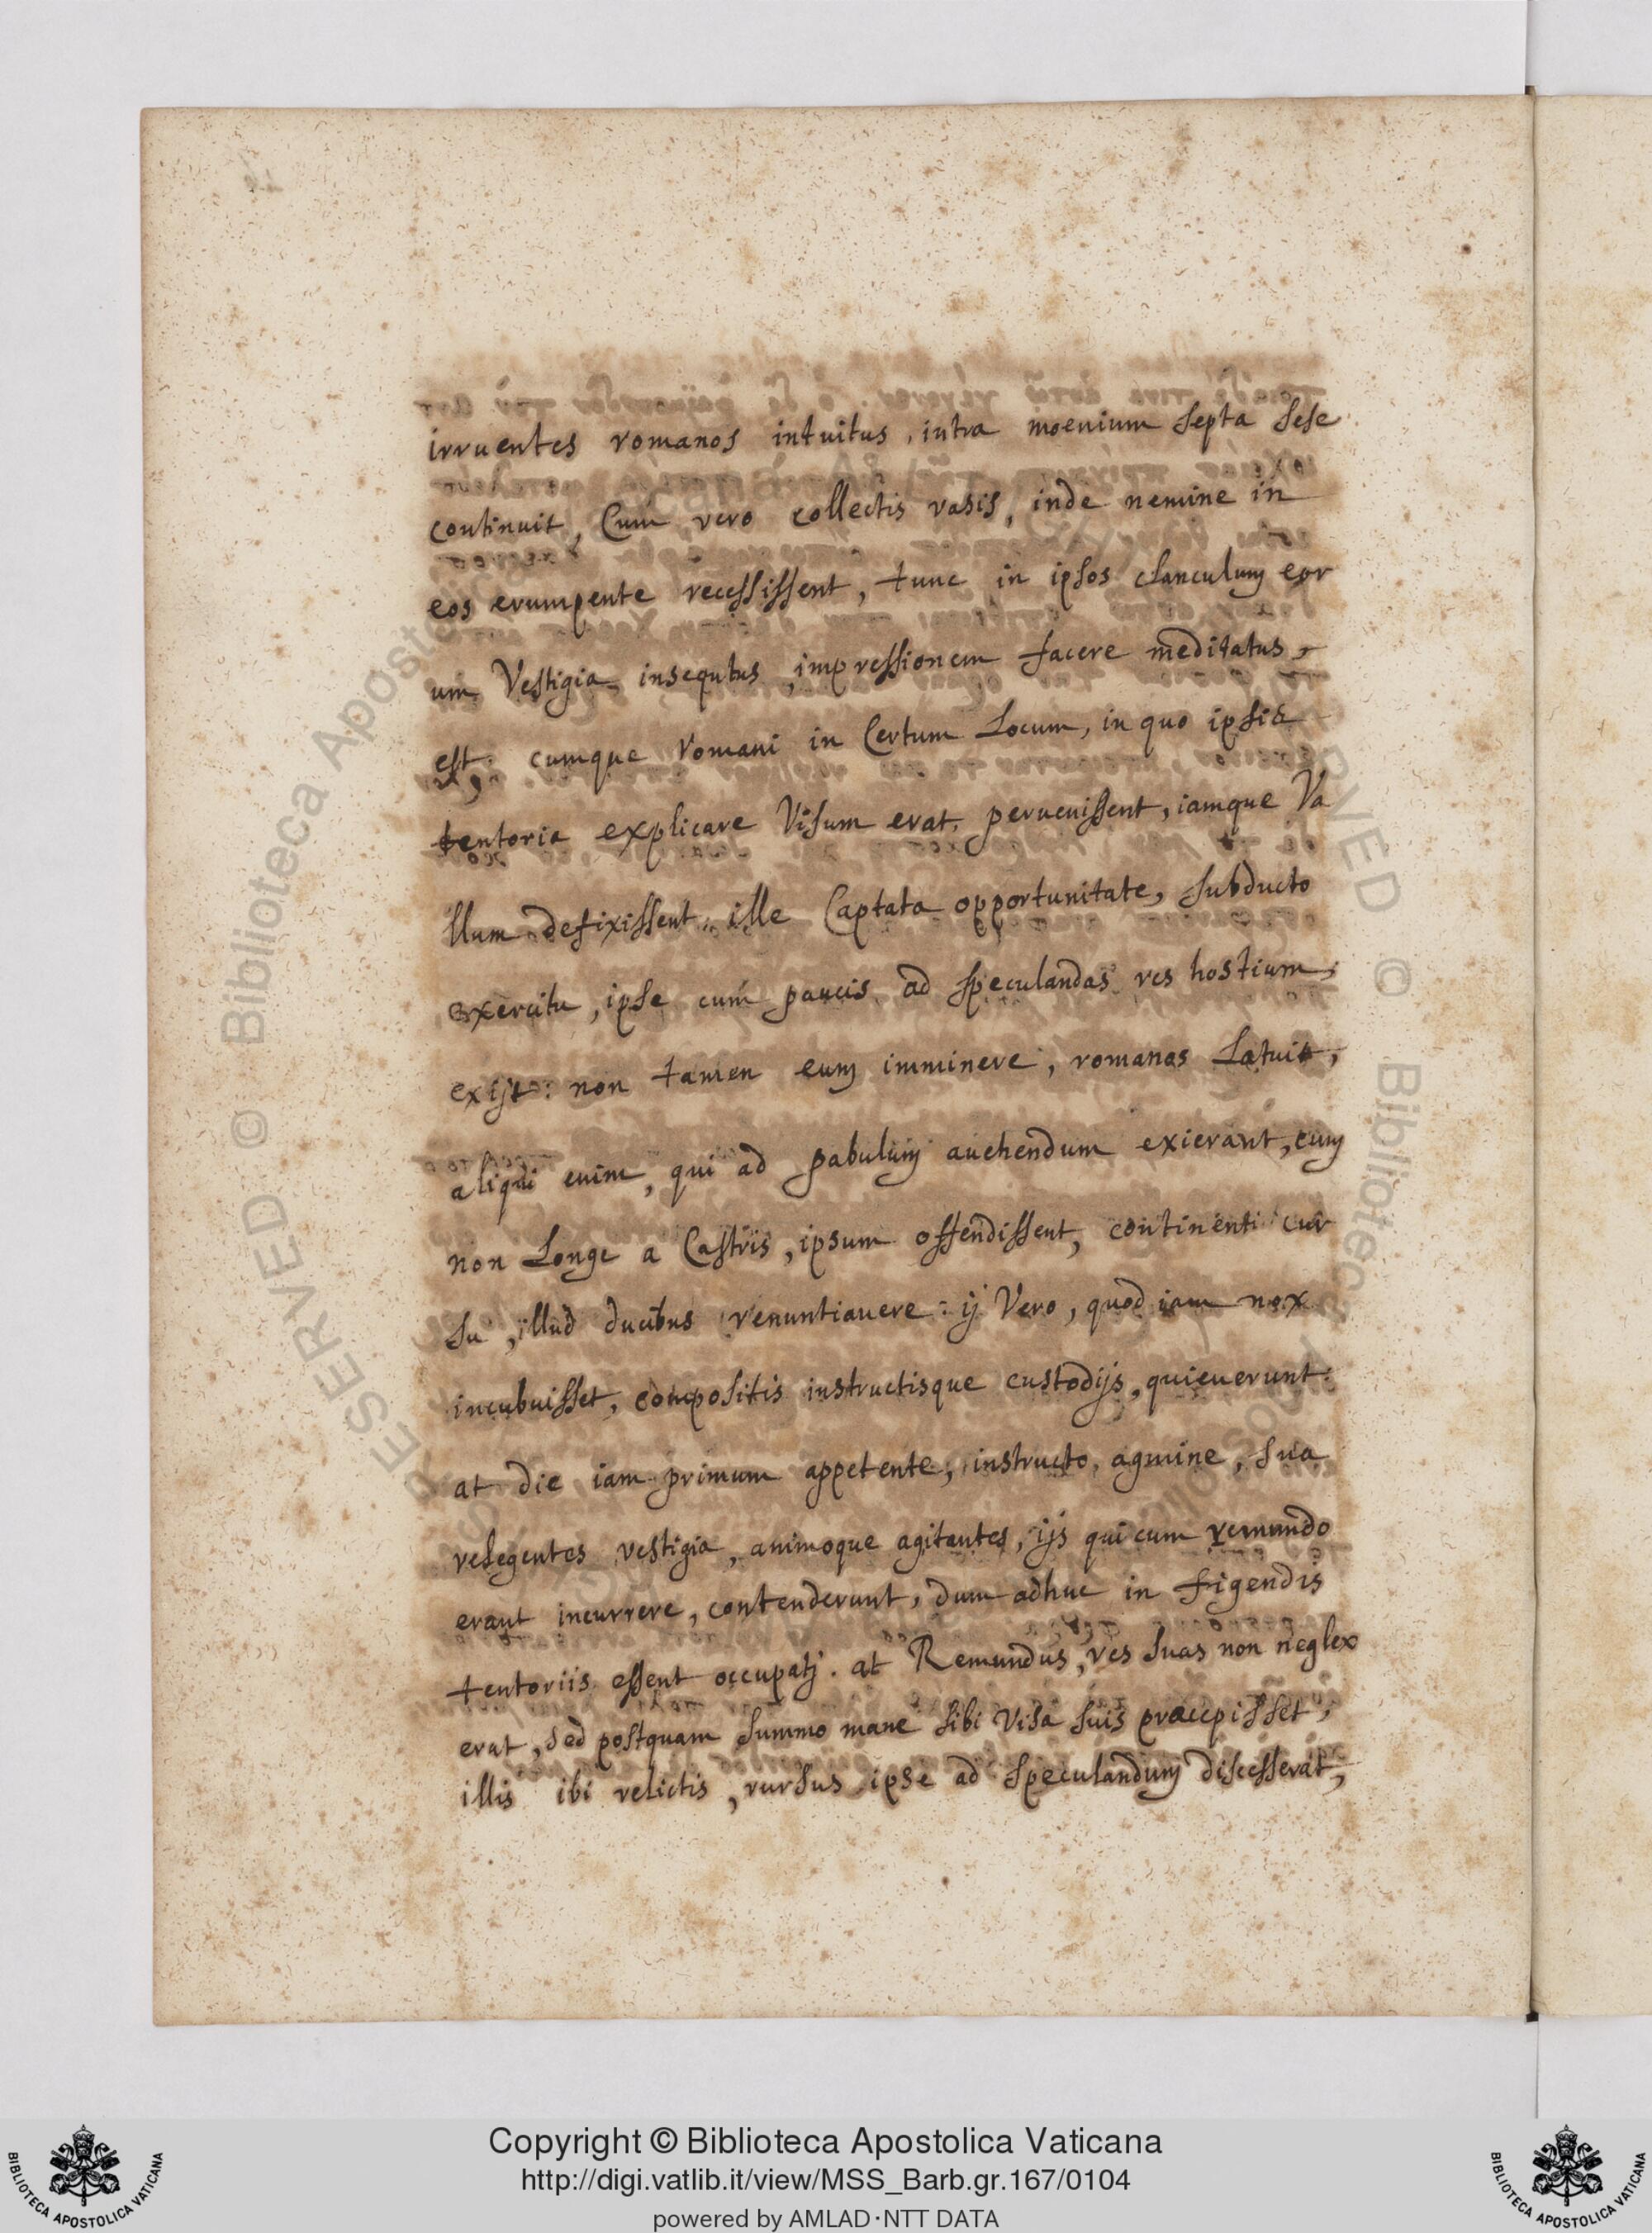 irruentes romanos intuitus, intra moenium septa sese
continuit, Cum vero collectis vasis, inde nemine in
eos erumpente recessissent, tunc in ipsos clanculum eor
um Vestigia insequtus, impressionem facere meditatus
est; cumque romani in Certum Locum, in quo ipsis
tentoria explicare Visum erat, peruenissent, iamque Va
llum defixissent, ille Captata opportunitate, subducto
exercitu, ipse cum paucis ad speculandas res hostium,
exijt: non tamen eum imminere, romanos Latuit,
aliqui enim, qui ad pabulum auehendum exierant, cum
non Longe a Castris, ipsum offendissent, continenti cur
su, illud ducibus renuntiauere: ij Vero, quod iam nox
incubuisset, compositis instructisque custodijs, quieuerunt.
at die iam primum appetente, instructo agmine, sua
relegentes vestigia, animoque agitantes, ijs qui cum remundo
erant incurrere, contenderunt, dum adhuc in figendis
tentoriis essent occupatj. at Remundus, res suas non neglex
erat, sed postquam summo mane sibi Visa suis praecepisset,
illis ibi relictis, rursus ipse ad speculandum discesserat,
Copyright © Biblioteca Apostolica Vaticana
http://digi.vatlib.it/view/MSS_Barb.gr.167/0104
powered by AMLAD·NTT DATA